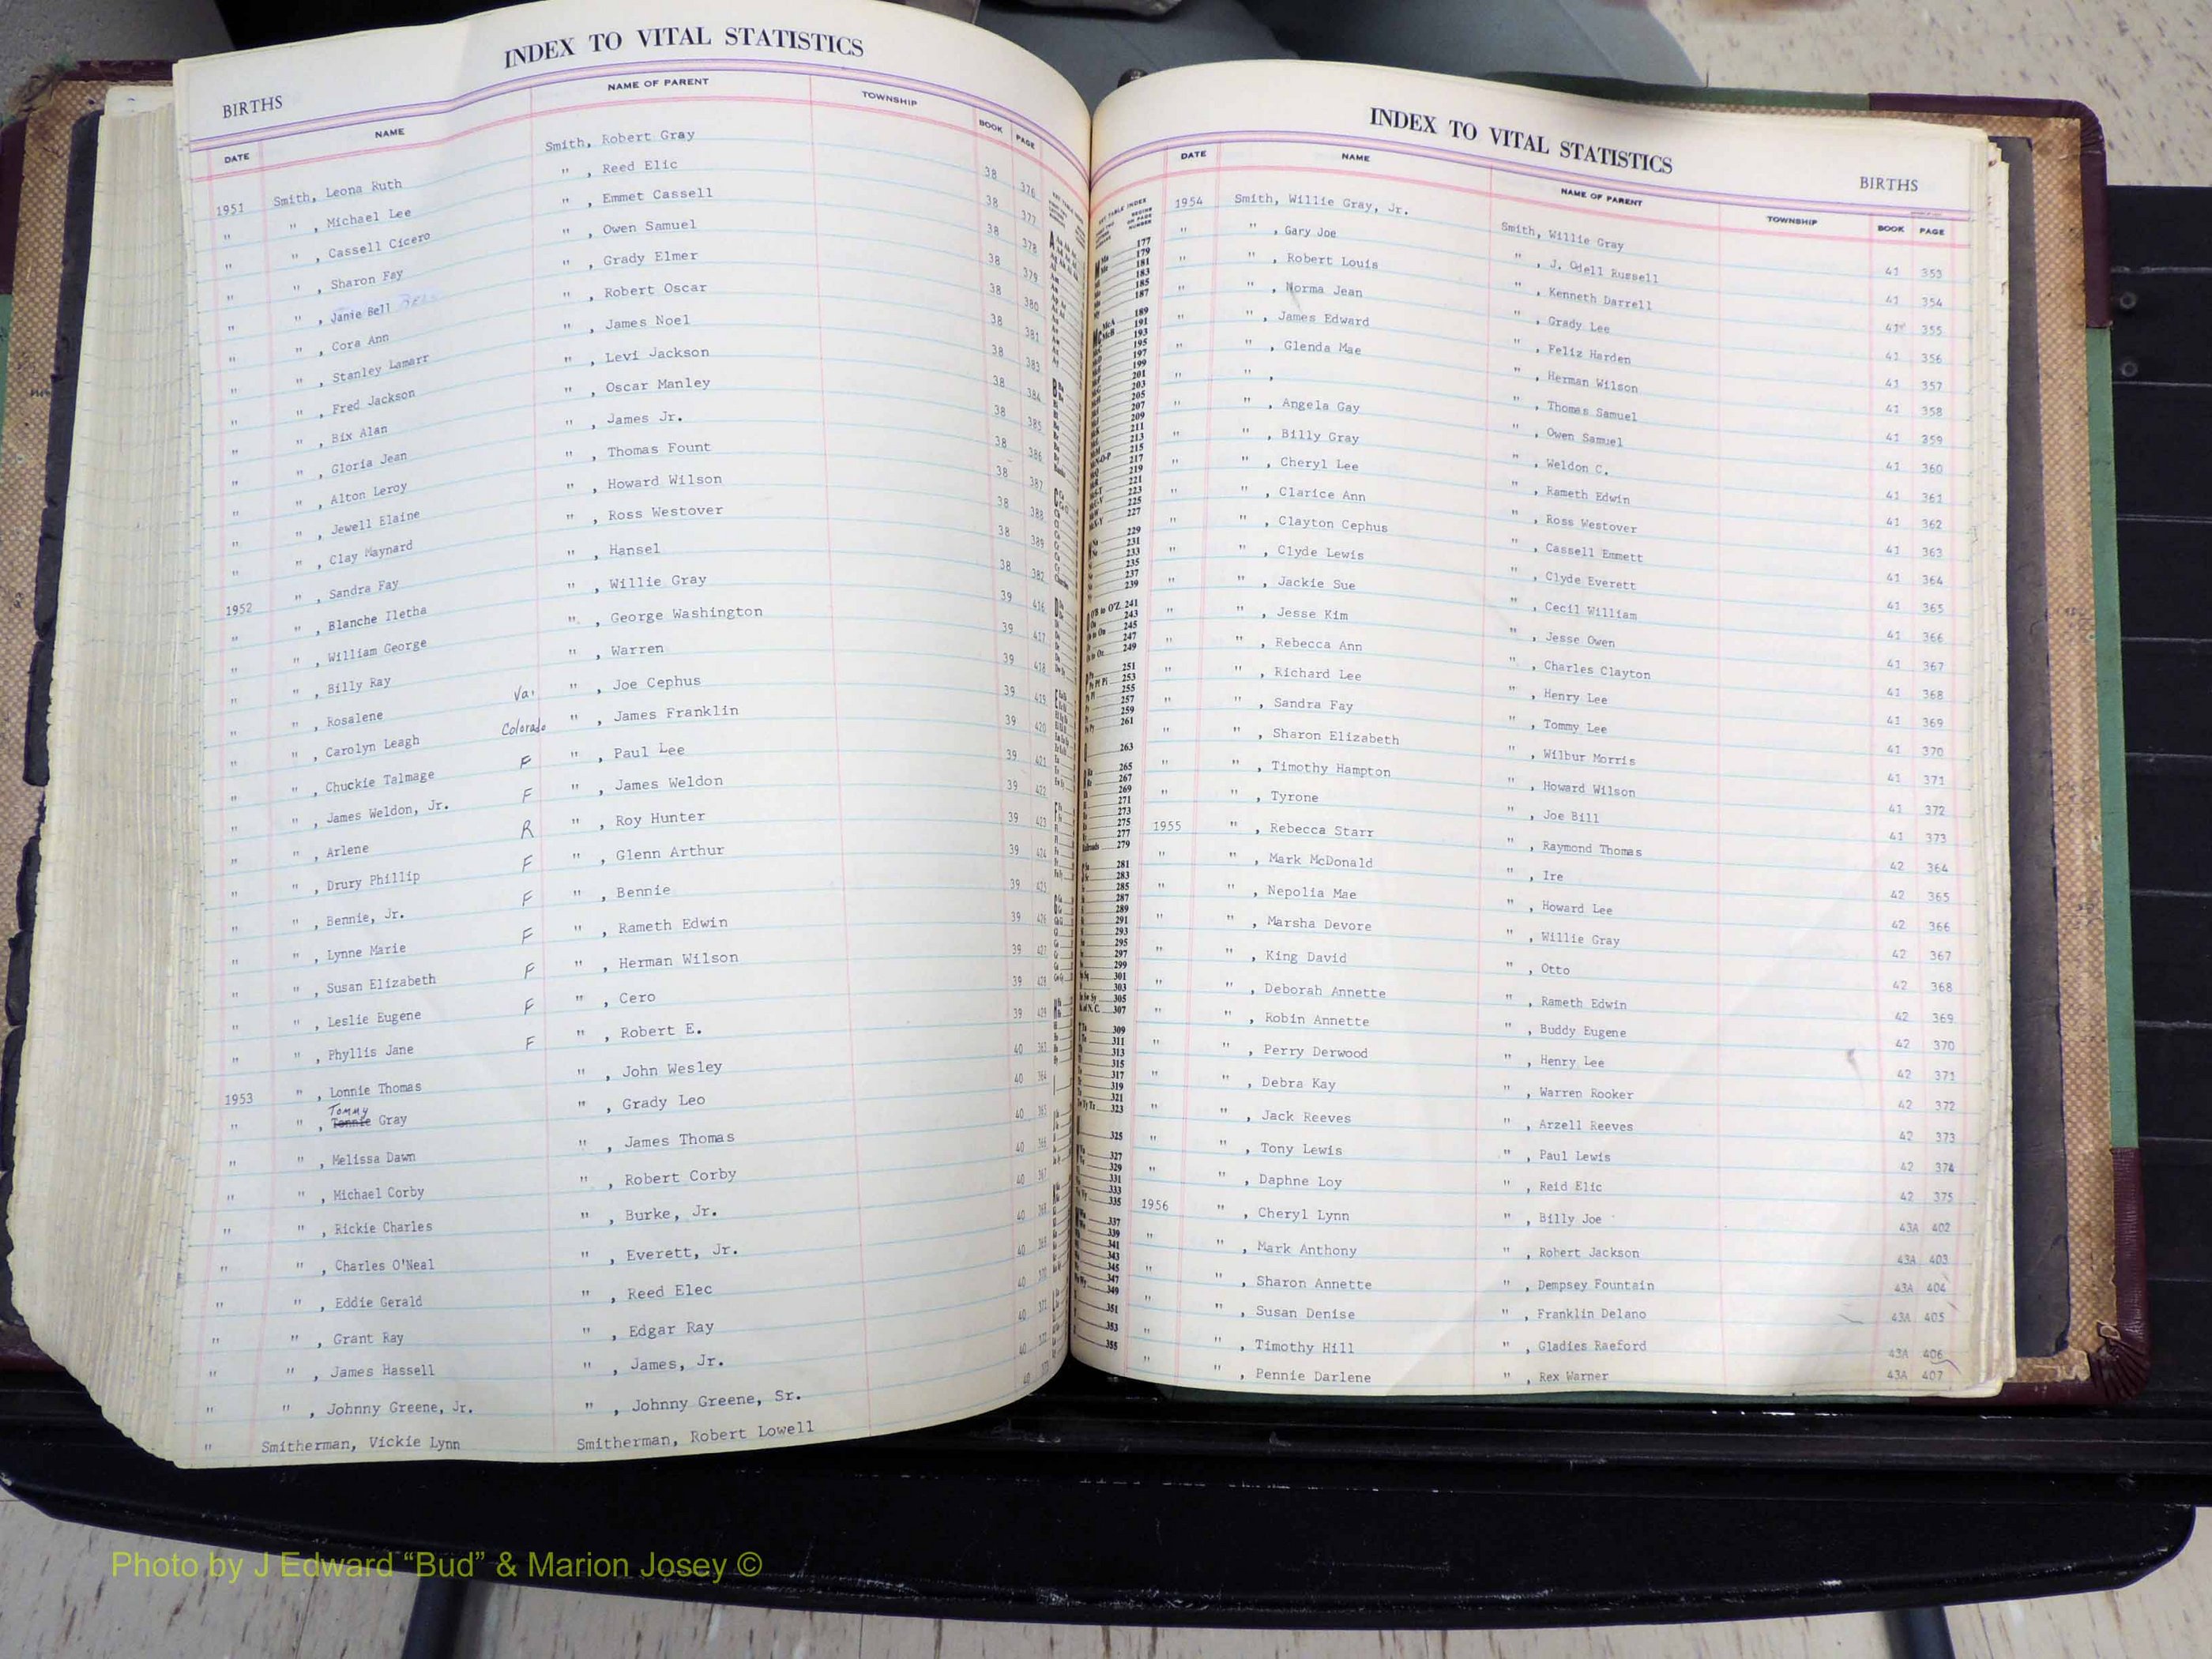 INDEX TO VITAL STATISTICS
BIRTHS
DATE NAME NAME OF PARENT TOWNSHIP BOOK PAGE
1951 Smith, Leona Ruth Smith, Robert Gray 38 376
" " , Michael Lee " , Reed Elic 38 377
" " , Cassell Cicero " , Emmet Cassell 38 378
" " , Sharon Fay " , Owen Samuel 38 379
" " , Janie Bell " , Grady Elmer 38 380
" " , Cora Ann " , Robert Oscar 38 381
" " , Stanley Lamarr " , James Noel 38 383
" " , Fred Jackson " , Levi Jackson 38 384
" " , Bix Alan " , Oscar Manley 38 385
" " , Gloria Jean " , James Jr. 38 386
" " , Alton Leroy " , Thomas Fount 38 387
" " , Jewell Elaine " , Howard Wilson 38 388
" " , Clay Maynard " , Ross Westover 38 389
1952 " , Sandra Fay " , Hansel 38 382
" " , Blanche Iletha " , Willie Gray 39 416
" " , William George " , George Washington 39 417
" " , Billy Ray " , Warren 39 418
" " , Rosalene Va. " , Joe Cephus 39 419
" " , Carolyn Leagh Colorado " , James Franklin 39 420
" " , Chuckie Talmage F " , Paul Lee 39 421
" " , James Weldon, Jr. F " , James Weldon 39 422
" " , Arlene R " , Roy Hunter 39 423
" " , Drury Phillip F " , Glenn Arthur 39 424
" " , Bennie, Jr. F " , Bennie 39 425
" " , Lynne Marie F " , Rameth Edwin 39 426
" " , Susan Elizabeth F " , Herman Wilson 39 427
" " , Leslie Eugene F " , Cero 39 428
" " , Phyllis Jane F " , Robert E. 39 429
1953 " , Lonnie Thomas " , John Wesley 40 363
Tommy
" " , Tonnie Gray " , Grady Leo 40 364
" " , Melissa Dawn " , James Thomas 40 365
" " , Michael Corby " , Robert Corby 40 366
" " , Rickie Charles " , Burke, Jr. 40 367
" " , Charles O'Neal " , Everett, Jr. 40 368
" " , Eddie Gerald " , Reed Elec 40 369
" " , Grant Ray " , Edgar Ray 40 370
" " , James Hassell " , James, Jr. 40 371
" " , Johnny Greene, Jr. " , Johnny Greene, Sr. 40 372
" Smitherman, Vickie Lynn Smitherman, Robert Lowell 40
INDEX TO VITAL STATISTICS
BIRTHS
DATE NAME NAME OF PARENT TOWNSHIP BOOK PAGE
1954 Smith, Willie Gray, Jr. Smith, Willie Gray 41 353
" " , Gary Joe " , J. Odell Russell 41 354
" " , Robert Louis " , Kenneth Darrell 41 355
" " , Norma Jean " , Grady Lee 41 356
" " , James Edward " , Feliz Harden 41 357
" " , Glenda Mae " , Herman Wilson 41 358
" " , " , Thomas Samuel 41 359
" " , Angela Gay " , Owen Samuel 41 360
" " , Billy Gray " , Weldon C. 41 361
" " , Cheryl Lee " , Rameth Edwin 41 362
" " , Clarice Ann " , Ross Westover 41 363
" " , Clayton Cephus " , Cassell Emmett 41 364
" " , Clyde Lewis " , Clyde Everett 41 365
" " , Jackie Sue " , Cecil William 41 366
" " , Jesse Kim " , Jesse Owen 41 367
" " , Rebecca Ann " , Charles Clayton 41 368
" " , Richard Lee " , Henry Lee 41 369
" " , Sandra Fay " , Tommy Lee 41 370
" " , Sharon Elizabeth " , Wilbur Morris 41 371
" " , Timothy Hampton " , Howard Wilson 41 372
" " , Tyrone " , Joe Bill 41 373
1955 " , Rebecca Starr " , Raymond Thomas 42 364
" " , Mark McDonald " , Ire 42 365
" " , Nepolia Mae " , Howard Lee 42 366
" " , Marsha Devore " , Willie Gray 42 367
" " , King David " , Otto 42 368
" " , Deborah Annette " , Rameth Edwin 42 369
" " , Robin Annette " , Buddy Eugene 42 370
" " , Perry Derwood " , Henry Lee 42 371
" " , Debra Kay " , Warren Rooker 42 372
" " , Jack Reeves " , Arzell Reeves 42 373
" " , Tony Lewis " , Paul Lewis 42 374
" " , Daphne Loy " , Reid Elic 42 375
1956 " , Cheryl Lynn " , Billy Joe 43A 402
" " , Mark Anthony " , Robert Jackson 43A 403
" " , Sharon Annette " , Dempsey Fountain 43A 404
" " , Susan Denise " , Franklin Delano 43A 405
" " , Timothy Hill " , Gladies Raeford 43A 406
" " , Pennie Darlene " , Rex Warner 43A 407
Photo by J Edward “Bud” & Marion Josey ©